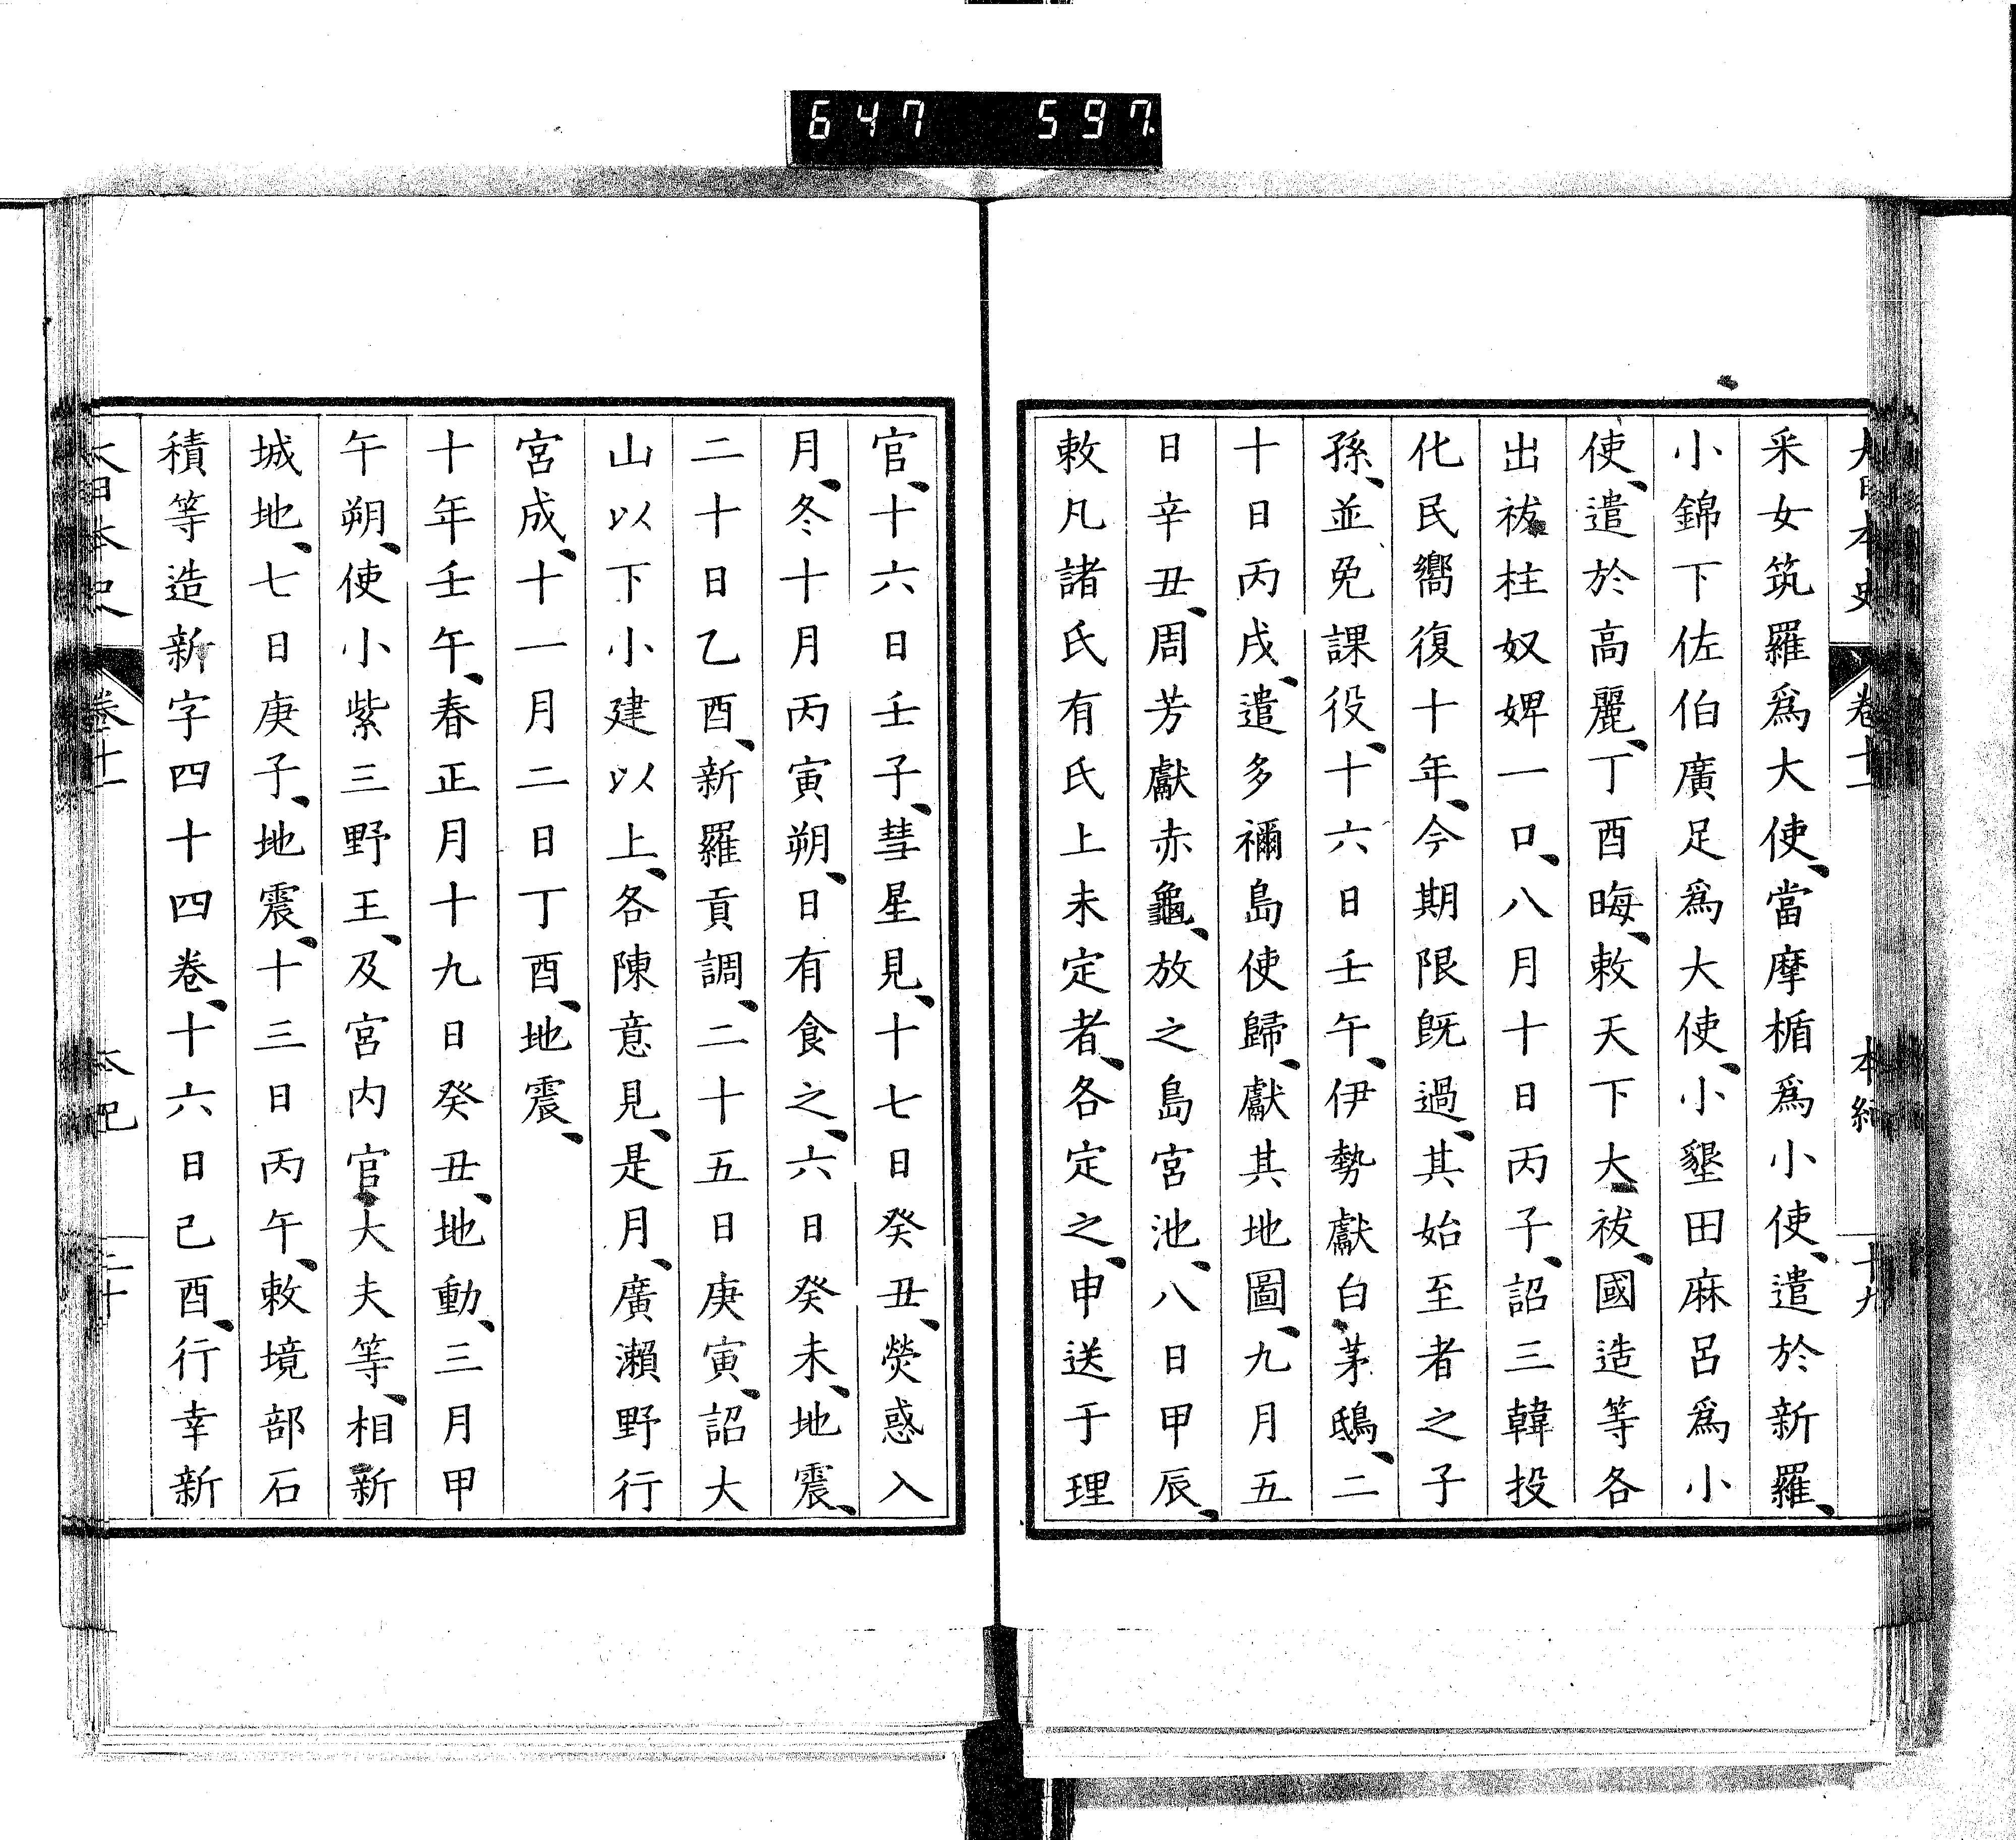 647 597
大日本史 卷十一 本紀 十九
采女筑羅爲大使、當摩楯爲小使、遣於新羅、
小錦下佐伯廣足爲大使、小墾田麻呂爲小
使、遣於高麗、丁酉晦、敕天下大祓、國造等各
出祓柱奴婢一口、八月十日丙子、詔三韓投
化民嚮復十年、今期限既過、其始至者之子
孫、並免課役、十六日壬午、伊勢獻白茅鴟、二
十日丙戌、遣多禰島使歸、獻其地圖、九月五
日辛丑、周芳獻赤龜、放之島宮池、八日甲辰、
敕凡諸氏有氏上未定者、各定之、申送于理
官、十六日壬子、彗星見、十七日癸丑、熒惑入
月、冬十月丙寅朔、日有食之、六日癸未、地震、
二十日乙酉、新羅貢調、二十五日庚寅、詔大
山以下小建以上、各陳意見、是月、廣瀨野行
宮成、十一月二日丁酉、地震、
十年壬午、春正月十九日癸丑、地動、三月甲
午朔、使小紫三野王、及宮内官大夫等、相新
城地、七日庚子、地震、十三日丙午、敕境部石
積等造新字四十四卷、十六日己酉、行幸新
大日本史 卷十一 本紀 二十